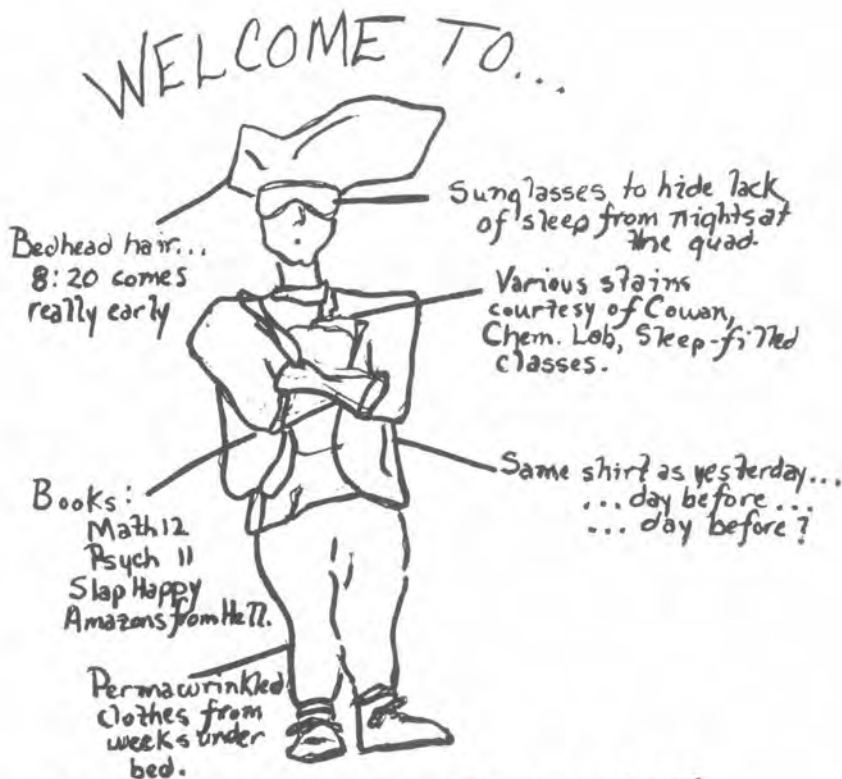 WELCOME TO...
Sunglasses to hide lack
of sleep from nights at
the quad.
Bedhead hair...
8:20 comes
really early
Various stains
courtesy of Cowan,
Chem. Lab, Sleep-filled
classes.
Same shirt as yesterday...
... day before ...
... day before?
Books:
Math 12
Psych 11
Slap Happy
Amazons from Hell.
Permawrinkled
clothes from
weeks under
bed.